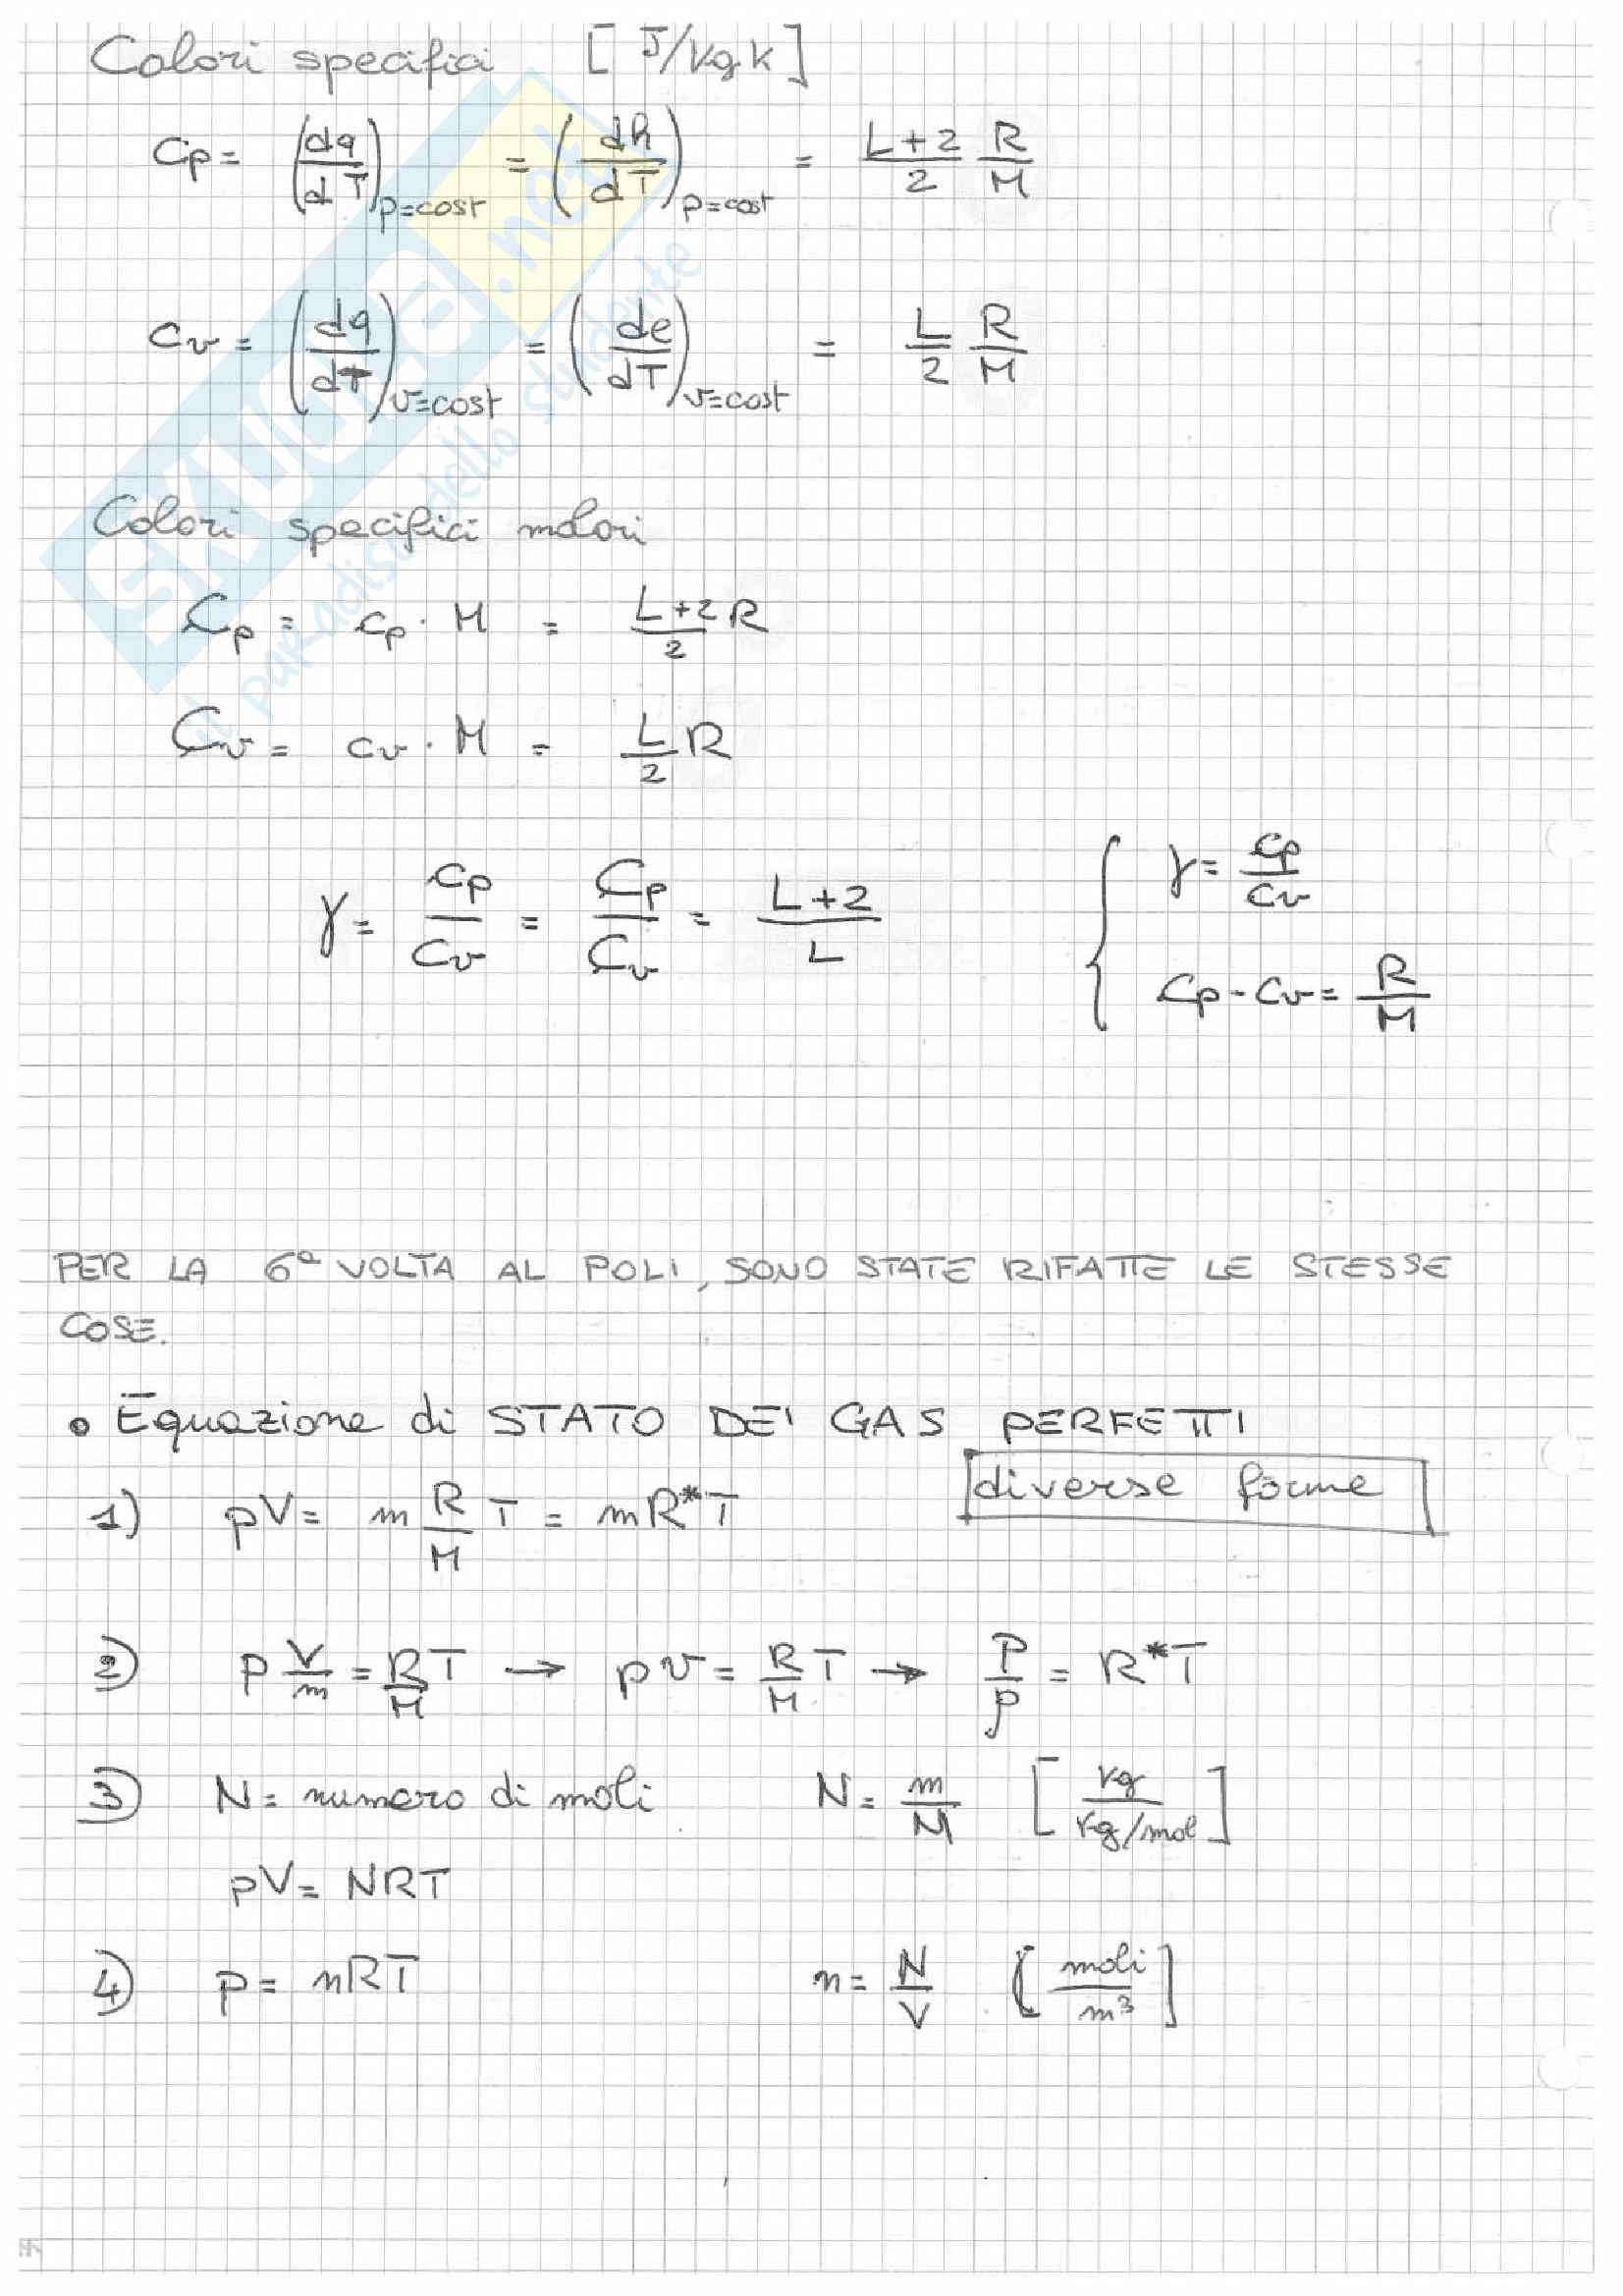 Calori specifici [J/kg k]
cp = (dq/dT)p=cost = (dh/dT)p=cost = L+2/2 R/M
cv = (dq/dT)v=cost = (de/dT)v=cost = L/2 R/M
Calori specifici molari
Cp = cp · M = L+2/2 R
Cv = cv · M = L/2 R
γ = cp/cv = Cp/Cv = L+2/L
{ γ = cp/cv
cp - cv = R/M
PER LA 6ª VOLTA AL POLI, SONO STATE RIFATTE LE STESSE
COSE.
• Equazione di STATO DEI GAS PERFETTI
diverse forme
1) pV = m R/M T = mR*T
2) p V/m = R/M T → pv = R/M T → P/ρ = R*T
3) N = numero di moli N = m/M [kg/kg/mol]
pV = NRT
4) p = nRT n = N/V [moli/m³]
SKUOLA.net
il paradiso dello studente